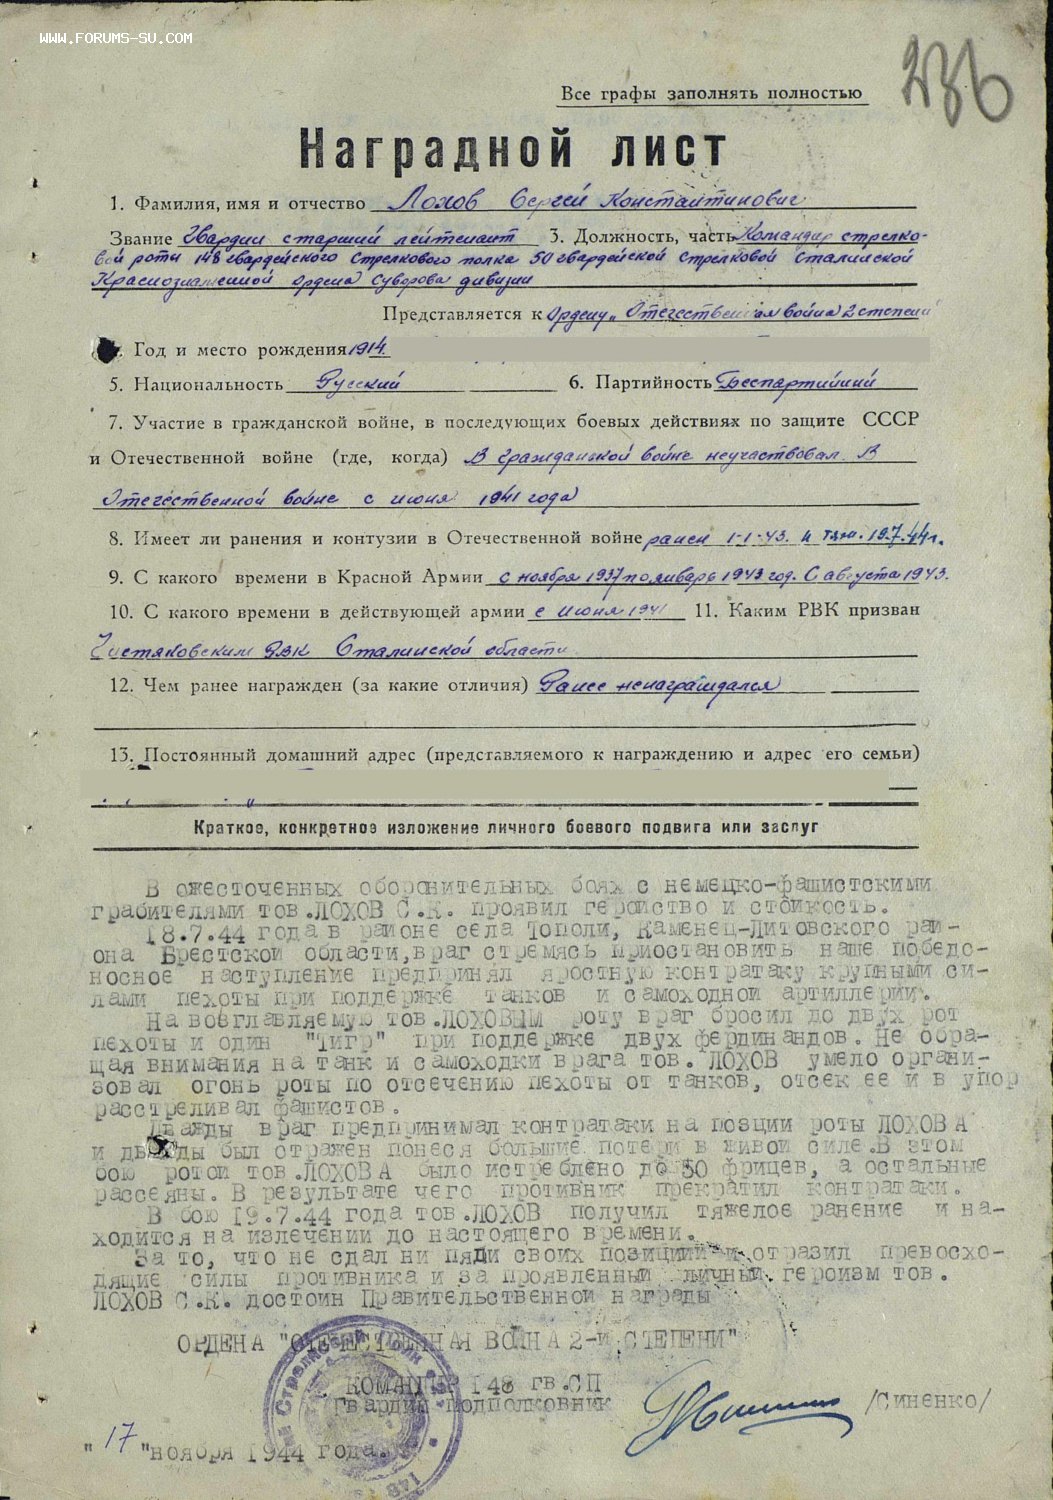 WWW.FORUMS-SU.COM
236
Все графы заполнять полностью
Наградной лист
1. Фамилия, имя и отчество Лохов Сергей Константинович
Звание Гвардии старший лейтенант 3. Должность, часть Командир стрелко-
вой роты 148 гвардейского стрелкового полка 50 гвардейской стрелковой Сталинской
Краснознаменной ордена Суворова дивизии
Представляется к Ордену „Отечественная война 2 степени
Год и место рождения 1914
5. Национальность Русский 6. Партийность Беспартийний
7. Участие в гражданской войне, в последующих боевых действиях по защите СССР
и Отечественной войне (где, когда) В гражданской войне неучаствовал. В
Отечественной войне с июня 1941 года
8. Имеет ли ранения и контузии в Отечественной войне ранен 1-1-43. и тяж. 19.7.44г.
9. С какого времени в Красной Армии с ноября 1937 по январь 1943 год. С августа 1943.
10. С какого времени в действующей армии с июня 1941 11. Каким РВК призван
Чистяковским РВК Сталинской области
12. Чем ранее награжден (за какие отличия) Ранее ненаграждался
13. Постоянный домашний адрес (представляемого к награждению и адрес его семьи)
Краткое, конкретное изложение личного боевого подвига или заслуг
В ожесточенных оборонительных боях с немецко-фашистскими
грабителями тов.ЛОХОВ С.К. проявил геройство и стойкость.
18.7.44 года в районе села Тополи, Каменец-Литовского рай-
она Брестской области, враг стремясь приостановить наше победо-
носное наступление предпринял яростную контратаку крупными си-
лами пехоты при поддержке танков и самоходной артиллерии.
На возглавляемую тов.ЛОХОВЫМ роту враг бросил до двух рот
пехоты и один "Тигр" при поддержке двух фердинандов. Не обра-
щая внимания на танк и самоходки врага тов. ЛОХОВ умело органи-
зовал огонь роты по отсечению пехоты от танков, отсек ее и в упор
расстреливал фашистов.
Дважды враг предпринимал контратаки на позции роты ЛОХОВА
и дважды был отражен понеся большие потери в живой силе.В этом
бою ротой тов.ЛОХОВА было истреблено до 50 фрицев, а остальные
рассеяны. В результате чего противник прекратил контратаки.
В бою 19.7.44 года тов.ЛОХОВ получил тяжелое ранение и на-
ходится на излечении до настоящего времени.
За то, что не сдал ни пяди своих позиций и отразил превосхо-
дящие силы противника и за проявленный личный героизм тов.
ЛОХОВ С.К. достоин Правительственной награды
ОРДЕНА "ОТЕЧЕСТВЕННАЯ ВОЙНА 2-й СТЕПЕНИ"
КОМАНДИР 148 гв.СП
Гвардии подполковник /Синенко/
"17" ноября 1944 года.